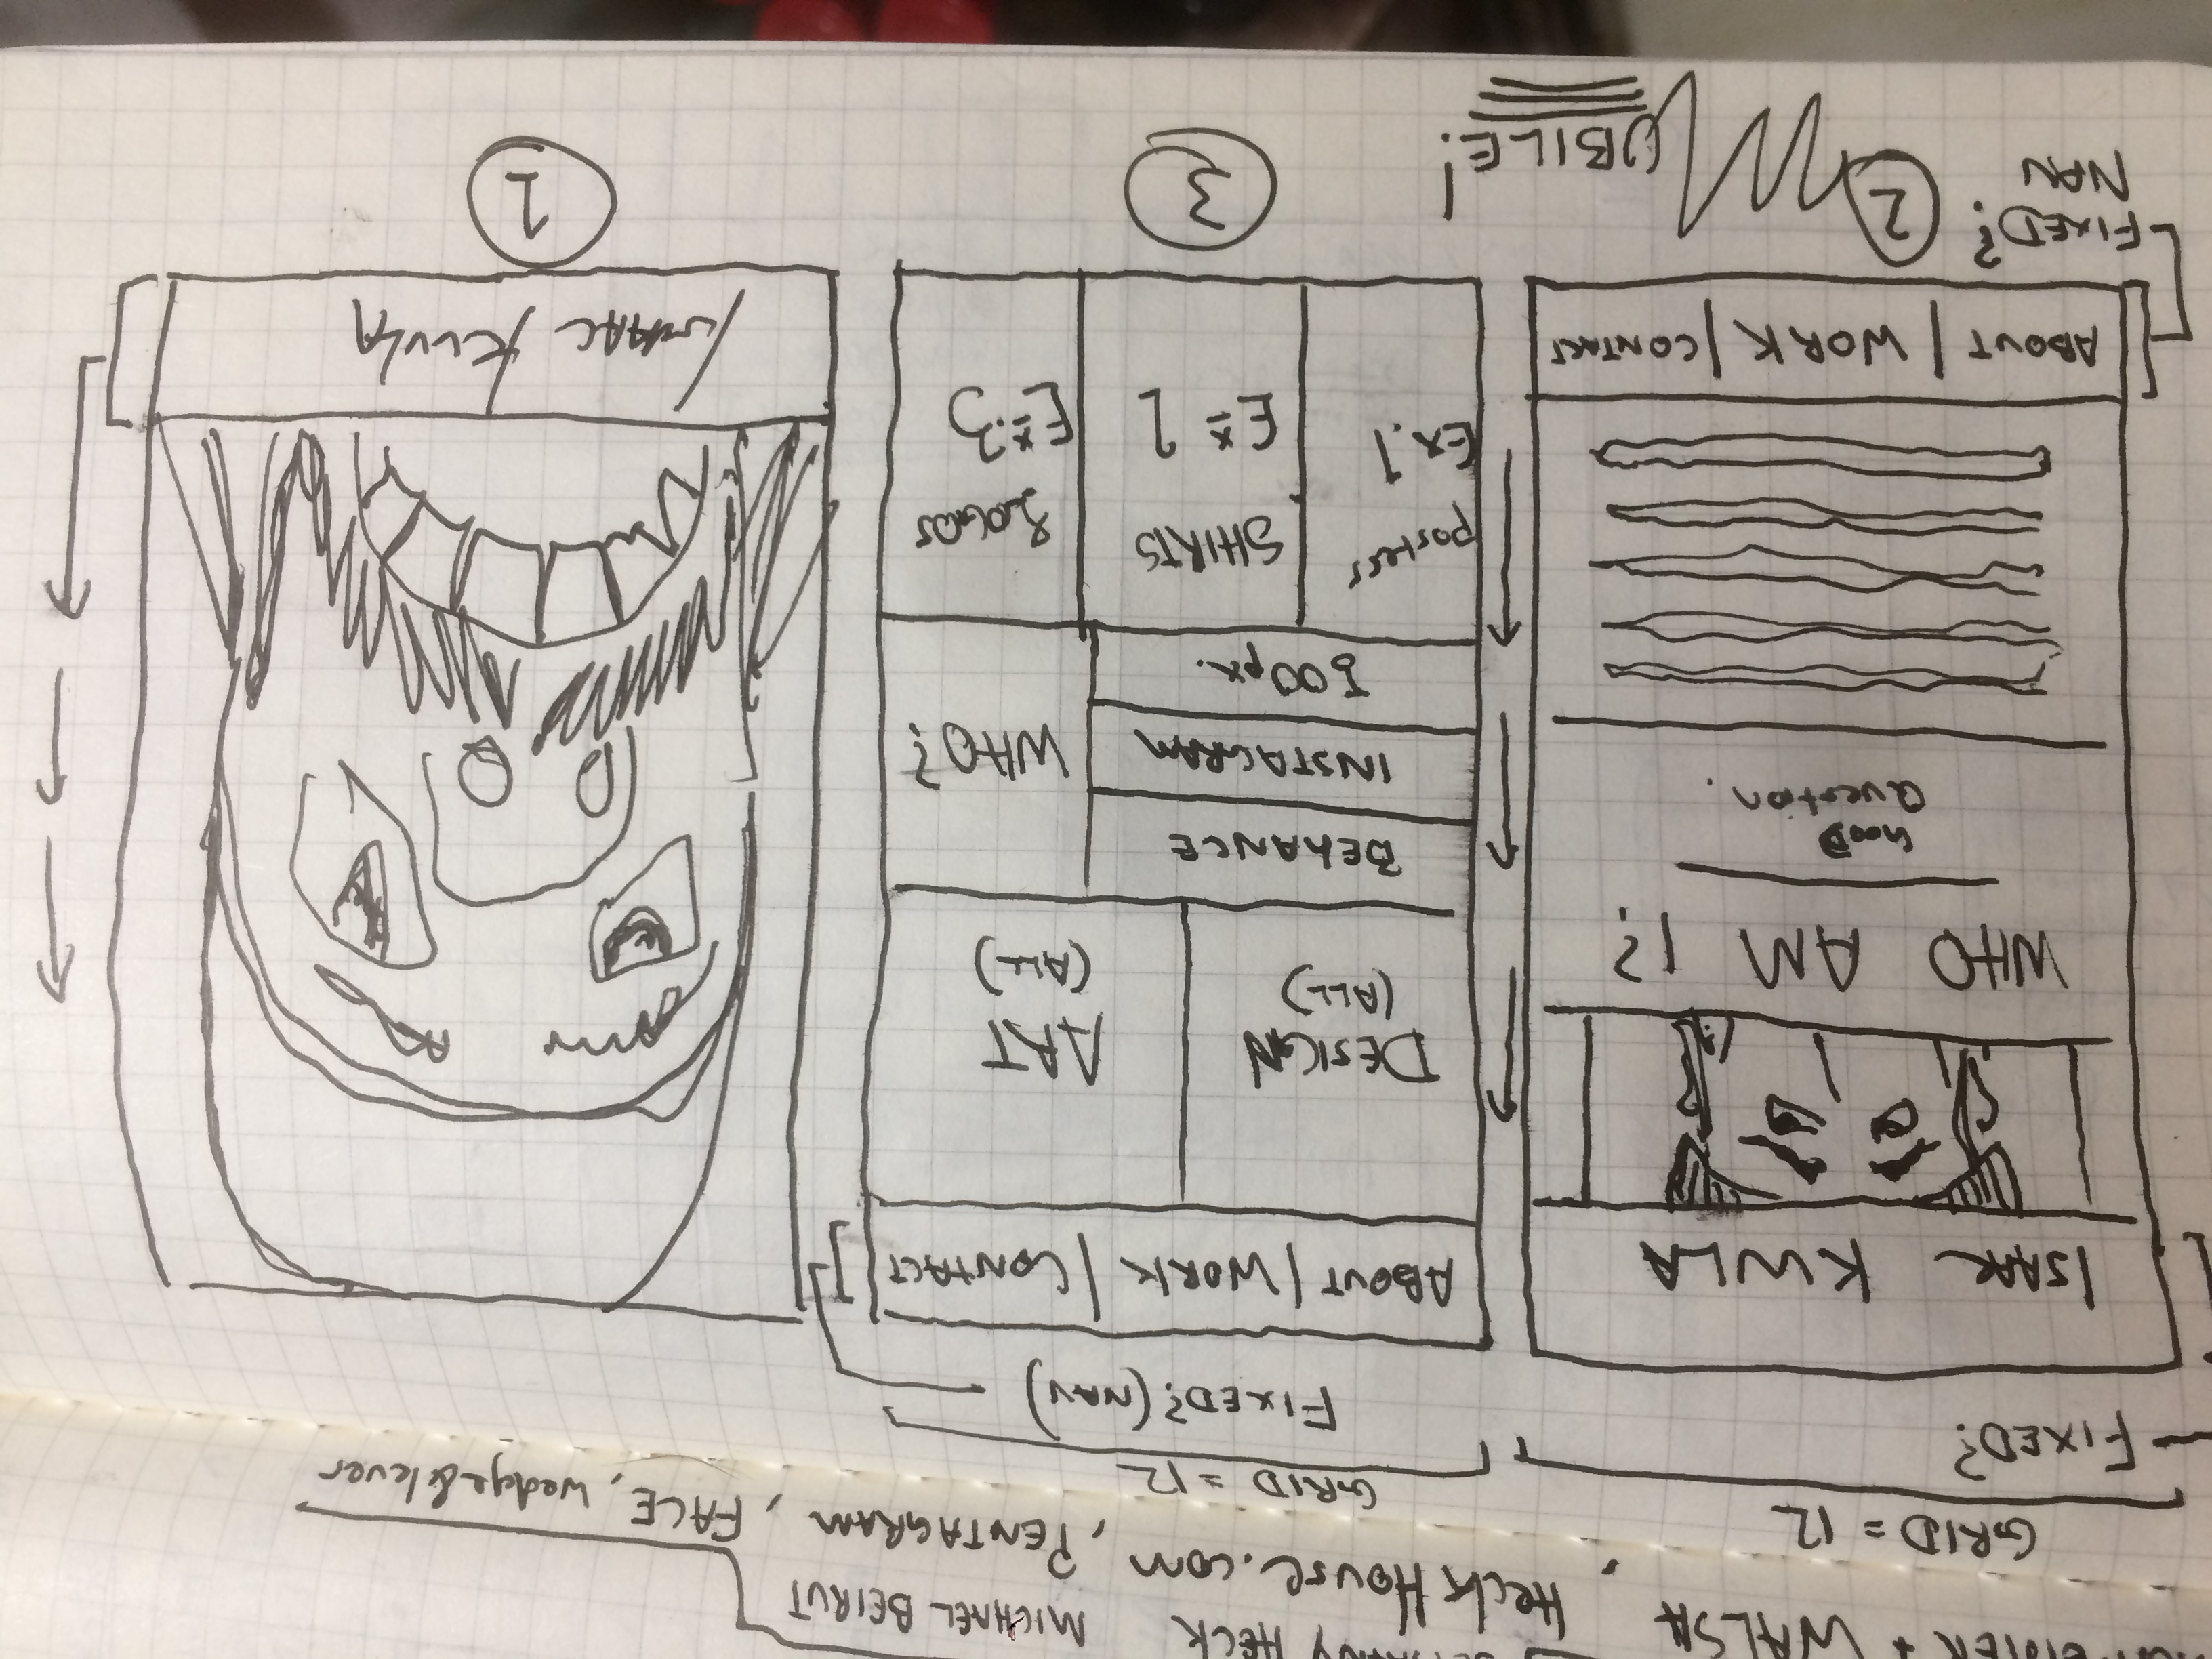 MICHAEL BEIRUT
Heck House.com, PENTAGRAM, FACE, wedge & lever
GRID = 12
FIXED?
ISAAK KWLA
WHO AM I?
GOOD
QUESTION.
ABOUT | WORK | CONTACT
FIXED?
NAV
2
MOBILE!
GRID = 12
FIXED? (NAV)
ABOUT | WORK | CONTACT
DESIGN
(ALL)
ART
(ALL)
BEHANCE
INSTAGRAM
500px.
WHO?
posters
Ex. 1
SHIRTS
Ex. 2
LOGOS
Ex. 3
3
ISAAC KWLA
1